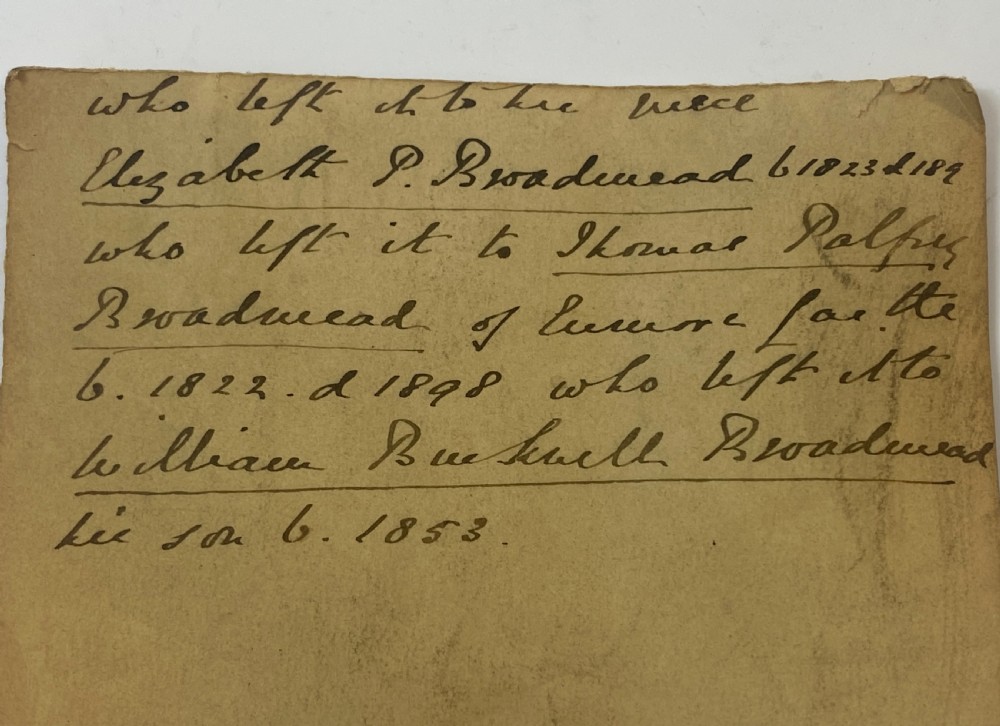 who left it to her niece
Elizabeth P. Broadmead b 1823 d 189
who left it to Thomas Palfrey
Broadmead of Enmore
b. 1822. d 1898 who left it to
William Bucknell Broadmead
his son b. 1853.